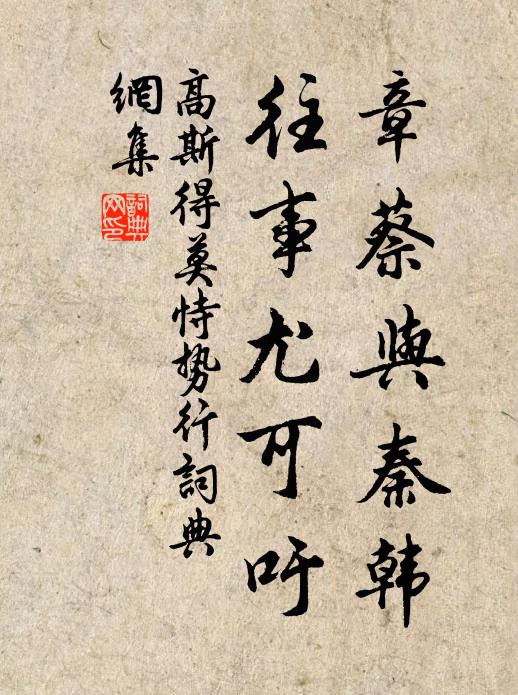 章蔡與秦韓
往事尤可吁
高斯得莫恃势行詞典
網集
詞典
网印